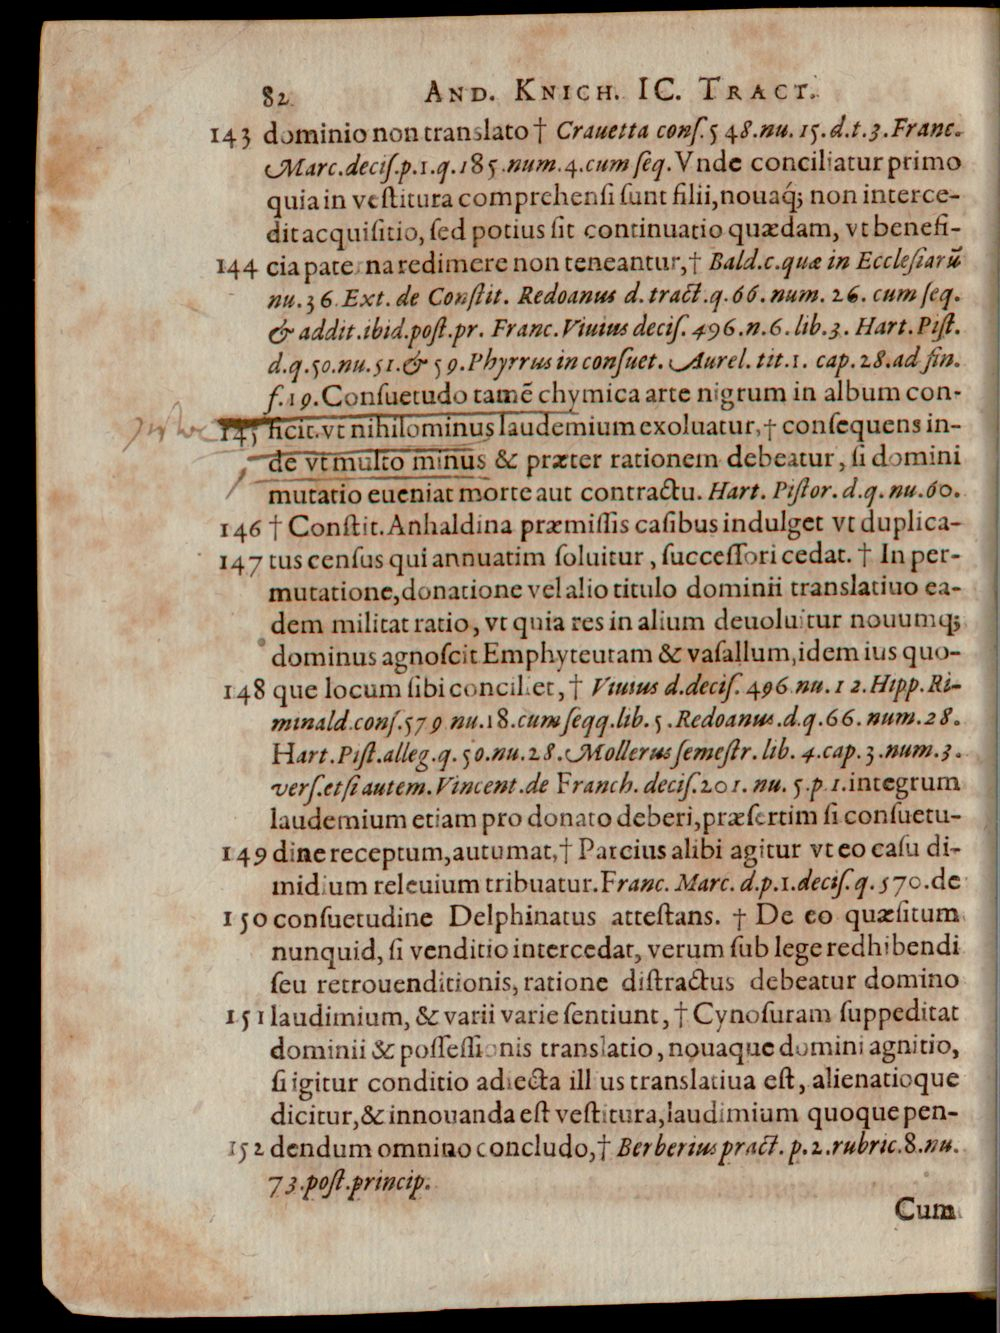 82 AND. KNICH. IC. TRACT.
143 dominio non translato † Crauetta conſ. 548. nu. 15. d. t. 3. Franc.
Marc. deciſ. p. 1. q. 185. num. 4. cum ſeq. Vnde conciliatur primo
quia in veſtitura comprehenſi ſunt filii, nouaq́; non interce-
dit acquiſitio, ſed potius ſit continuatio quædam, vt benefi-
144 cia paterna redimere non teneantur, † Bald. c. quæ in Eccleſiarũ
nu. 36. Ext. de Conſtit. Redoanus d. tract. q. 66. num. 26. cum ſeq.
& addit. ibid. poſt. pr. Franc. Viuius deciſ. 496. n. 6. lib. 3. Hart. Piſt.
d. q. 50. nu. 51. & 59. Phyrrus in conſuet. Aurel. tit. 1. cap. 28. ad fin.
f. 19. Conſuetudo tamẽ chymica arte nigrum in album con-
145 ficit. vt nihilominus laudemium exoluatur, † conſequens in-
de vt multo minus & præter rationem debeatur, ſi domini
mutatio eueniat morte aut contractu. Hart. Piſtor. d. q. nu. 60.
146 † Conſtit. Anhaldina præmiſſis caſibus indulget vt duplica-
147 tus cenſus qui annuatim ſoluitur, ſucceſſori cedat. † In per-
mutatione, donatione vel alio titulo dominii translatiuo ea-
dem militat ratio, vt quia res in alium deuoluitur nouumq;
dominus agnoſcit Emphyteutam & vaſallum, idem ius quo-
148 que locum ſibi conciliet, † Viuius d. deciſ. 496. nu. 12. Hipp. Ri-
minald. conſ. 579. nu. 18. cum ſeqq. lib. 5. Redoanus. d. q. 66. num. 28.
Hart. Piſt. alleg. q. 50. nu. 28. Mollerus ſemeſtr. lib. 4. cap. 3. num. 3.
verſ. etſi autem. Vincent. de Franch. deciſ. 201. nu. 5. p. 1. integrum
laudemium etiam pro donato deberi, præſertim ſi conſuetu-
149 dine receptum, autumat, † Parcius alibi agitur vt eo caſu di-
midium releuium tribuatur. Franc. Marc. d. p. 1. deciſ. q. 570. de
150 conſuetudine Delphinatus atteſtans. † De eo quæſitum
nunquid, ſi venditio intercedat, verum ſub lege redhibendi
ſeu retrouenditionis, ratione diſtractus debeatur domino
151 laudimium, & varii varie ſentiunt, † Cynoſuram ſuppeditat
dominii & poſſeſſionis translatio, nouaque domini agnitio,
ſi igitur conditio adiecta illius translatiua eſt, alienatioque
dicitur, & innouanda eſt veſtitura, laudimium quoque pen-
152 dendum omnino concludo, † Berberius pract. p. 2. rubric. 8. nu.
73. poſt. princip.
Cum